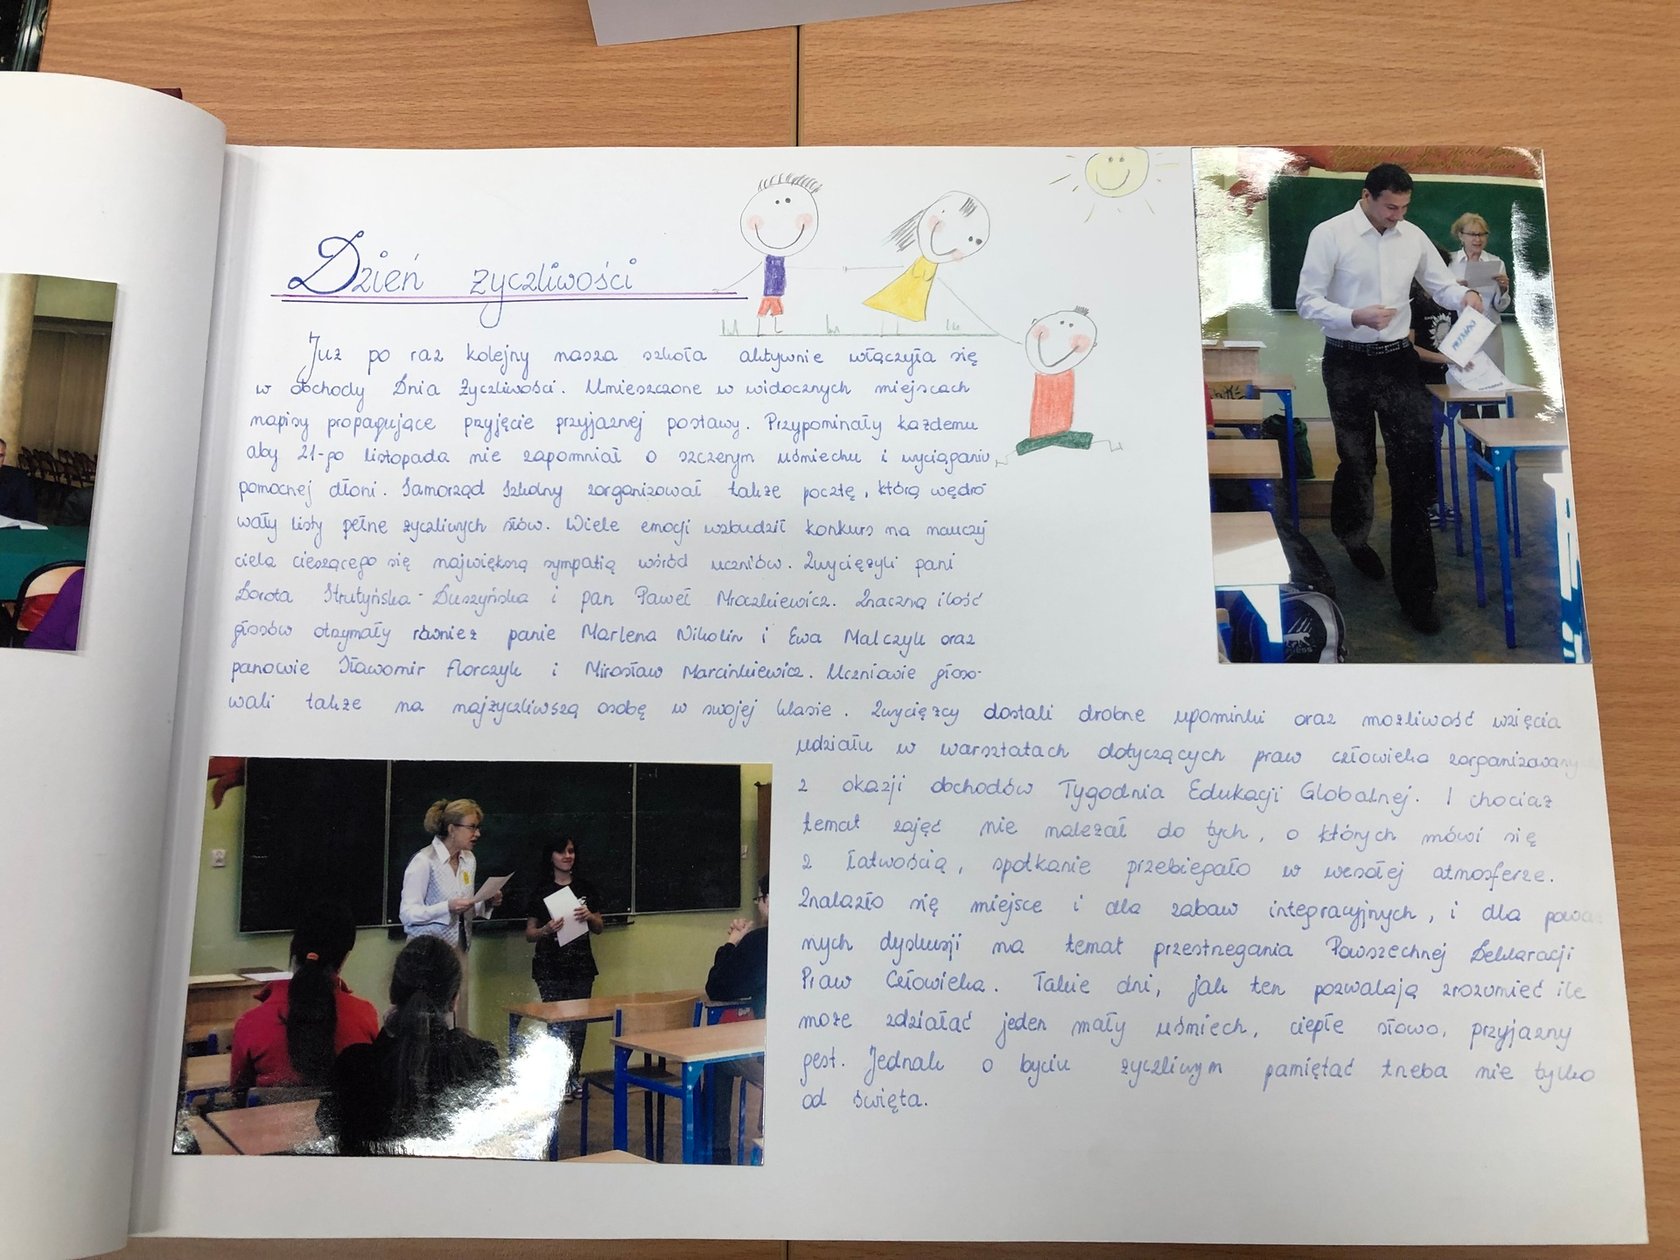 Dzień życzliwości
Już po raz kolejny nasza szkoła aktywnie włączyła się
w obchody Dnia Życzliwości. Umieszczone w widocznych miejscach
napisy propagujące przyjęcie przyjaznej postawy. Przypominały każdemu
aby 21-go listopada nie zapomniał o szczerym uśmiechu i wyciąganiu
pomocnej dłoni. Samorząd Szkolny zorganizował także pocztę, którą wędro
wały listy pełne życzliwych słów. Wiele emocji wzbudził konkurs na nauczy
ciela cieszącego się największą sympatią wśród uczniów. Zwyciężyli pani
Dorota Strutyńska-Duszyńska i pan Paweł Mroczkiewicz. Znaczną ilość
głosów otrzymały również panie Marlena Nikolin i Ewa Malczyk oraz
panowie Sławomir Florczyk i Mirosław Marcinkiewicz. Uczniowie głoso-
wali także na najżyczliwszą osobę w swojej klasie. Zwycięzcy dostali drobne upominki oraz możliwość wzięcia
udziału w warsztatach dotyczących praw człowieka zorganizowany
z okazji obchodów Tygodnia Edukacji Globalnej. I chociaż
temat zajęć nie należał do tych, o których mówi się
z łatwością, spotkanie przebiegało w wesołej atmosferze.
Znalazło się miejsce i dla zabaw integracyjnych, i dla poważ
nych dyskusji na temat przestrzegania Powszechnej Deklaracji
Praw Człowieka. Takie dni, jak ten pozwalają zrozumieć ile
może zdziałać jeden mały uśmiech, ciepłe słowo, przyjazny
gest. Jednak o byciu życzliwym pamiętać trzeba nie tylko
od święta.